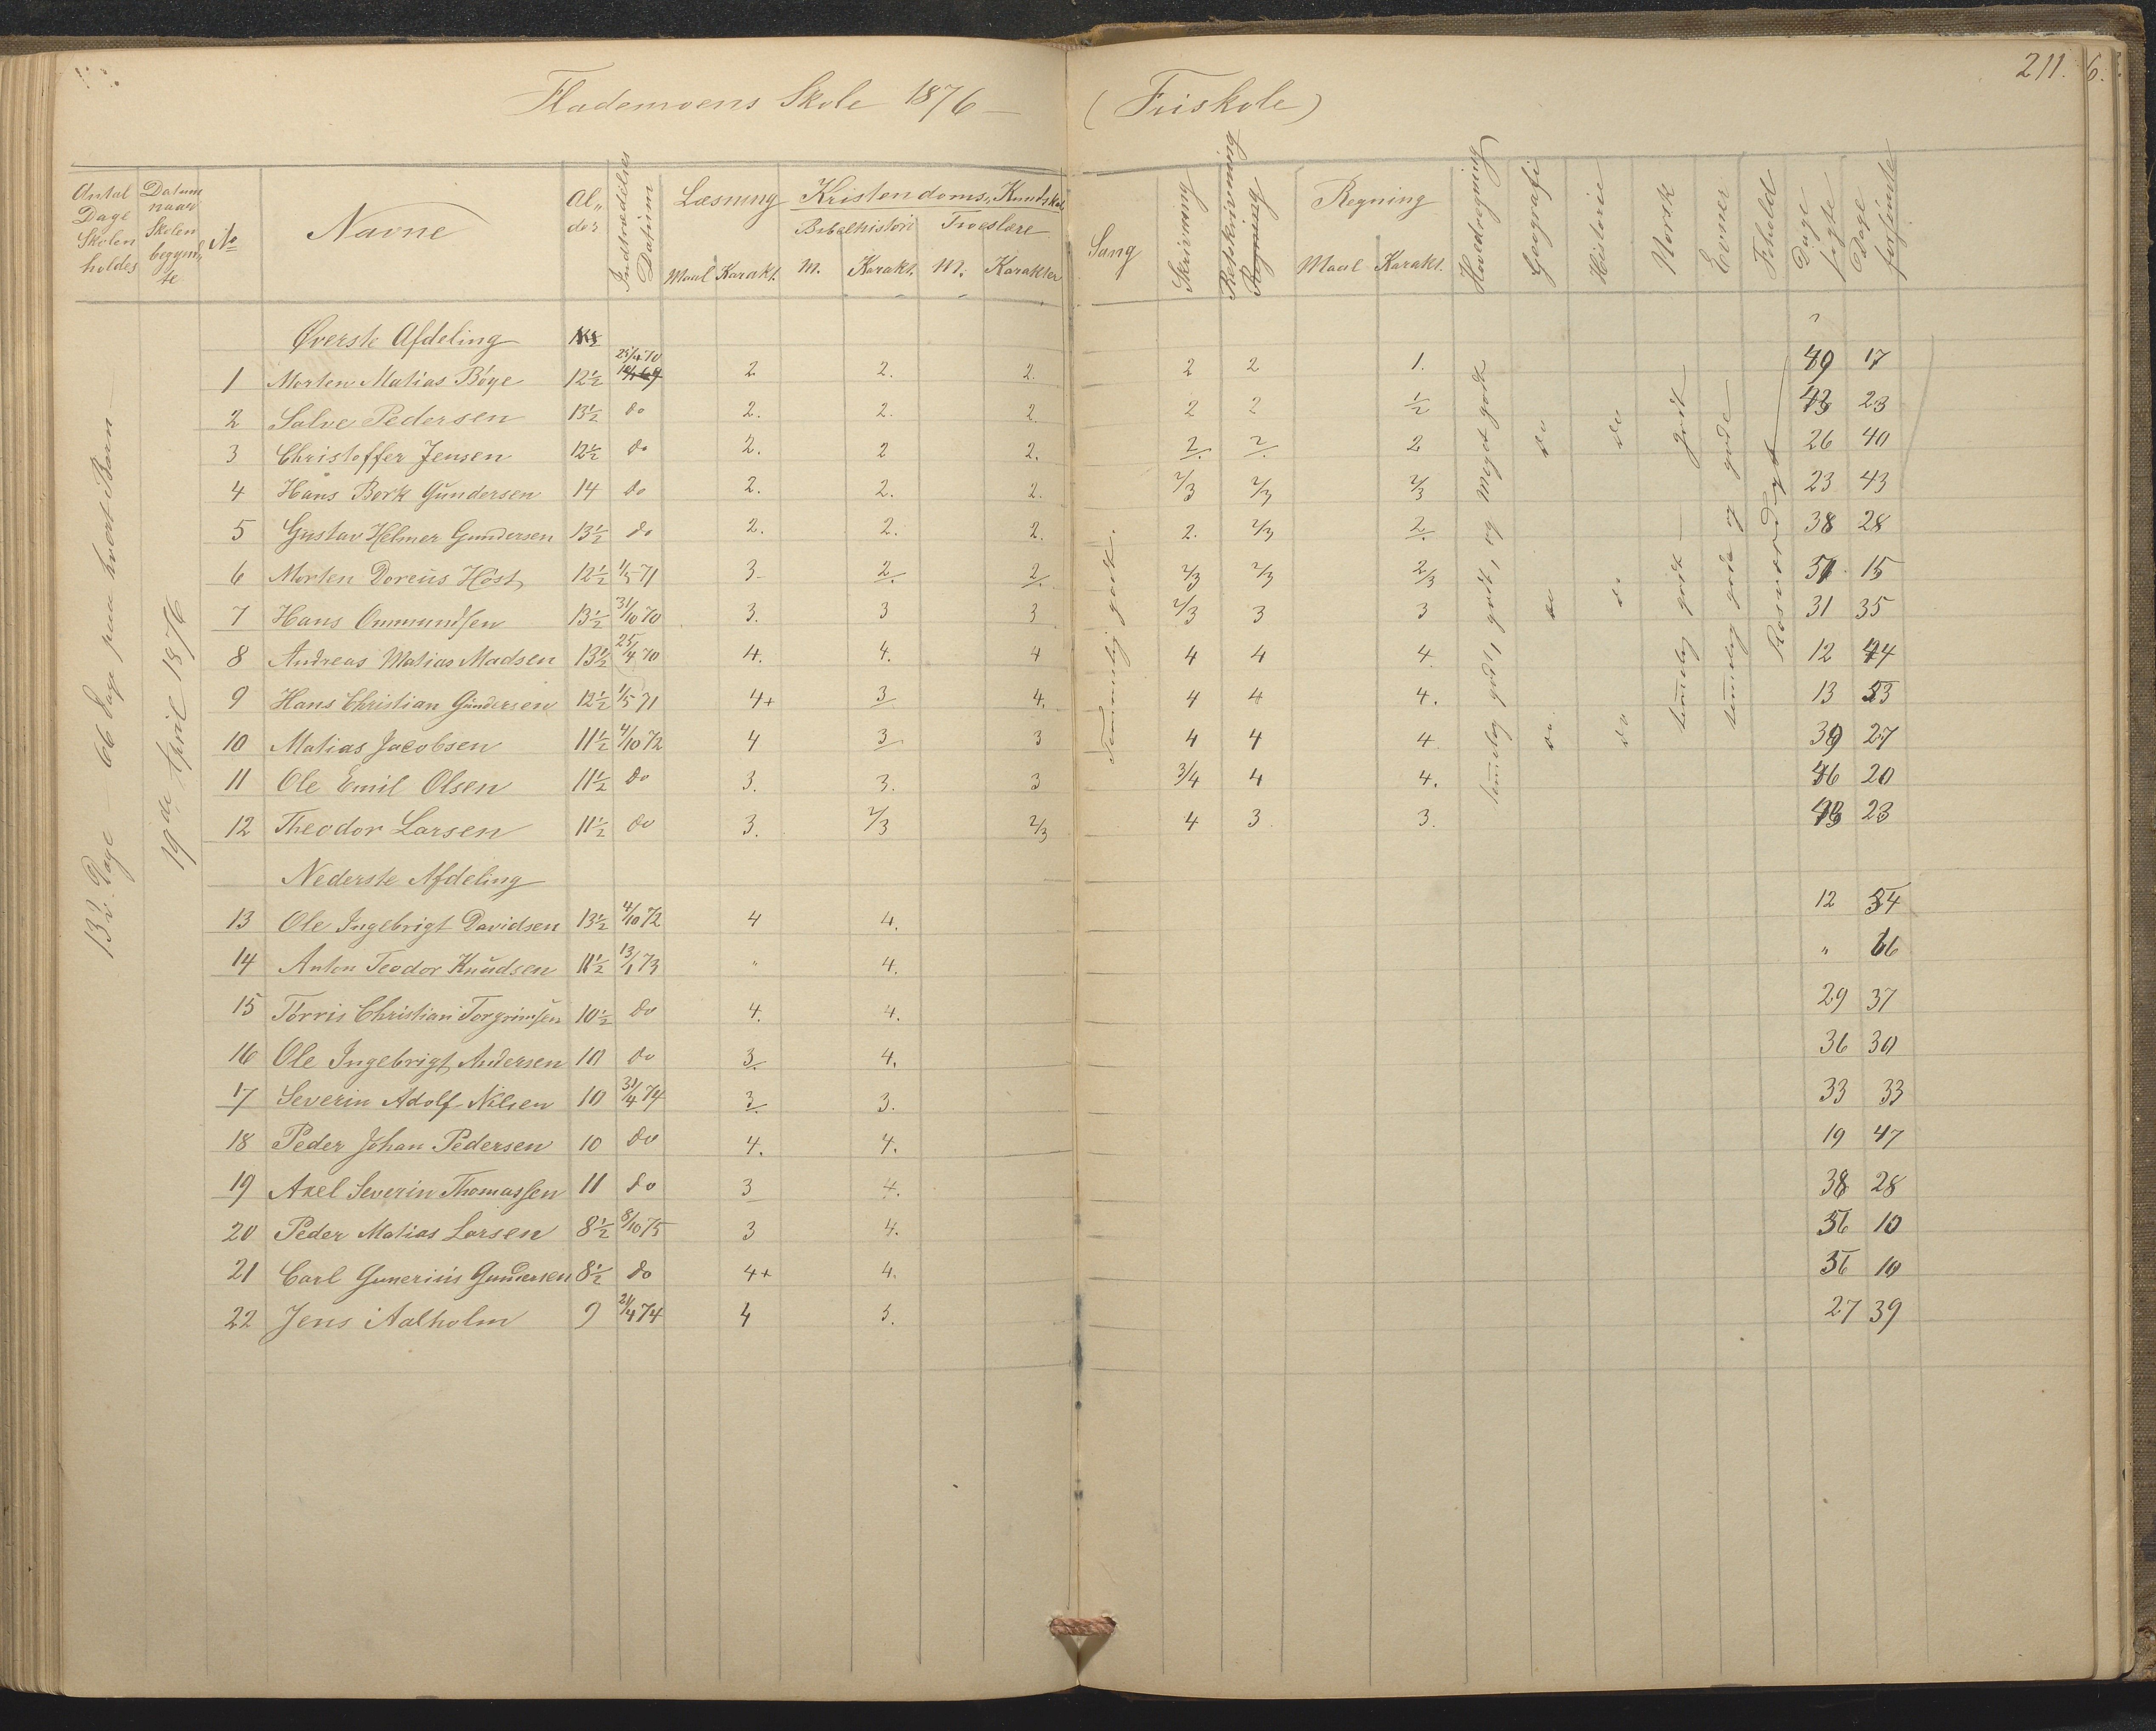 Flademoens Skole 1876 — (Friskole) 211. 6.
Antal Dage Skolen holdes
Datum naar Skolen begynd,, te
No
Navne
Al,, der
Indtrædelses Datum
Læsning
Maal Karakt.
Kristendoms,, Kundskab
Bibelhistori Troeslære
M. Karakt. M. Karakter
Sang
Skrivning
Retskrivning
Regning
Maal Karakt.
Hovedregning
Geografi
Historie
Norsk
Evner
Forhold
Dage søgte
Dage forsømte
132 Dage 66 Dage paa hvert Barn
19de April 1876
Øverste Afdeling
1 Morten Matias Böye 12½ 25/4 70 2 2. 2. 2 2 1. 49 17
2 Salve Pedersen 13½ do 2. 2. 2. 2 2 ½ 43 23
3 Christoffer Jensen 12½ do 2. 2 2. 2. 2. 2 26 40
4 Hans Bork Gundersen 14 do 2. 2. 2. 2/3 2/3 2/3 23 43
5 Gustav Helmer Gundersen 13½ do 2. 2. 2. 2. 2/3 2. 38 28
6 Morten Doreus Höst 12½ 1/5 71 3 2. 2. 2/3 2/3 2/3 51 15
7 Hans Ommundsen 13½ 31/10 70 3. 3 3 2/3 3 3 31 35
8 Andreas Matias Madsen 13½ 25/4 70 4. 4. 4 4 4 4. 12 44
9 Hans Christian Gundersen 12½ 1/5 71 4+ 3 4. 4 4 4. 13 53
10 Matias Jacobsen 11½ 4/10 72 4 3 3 4 4 4. 39 27
11 Ole Emil Olsen 11½ do 3. 3. 3 3/4 4 4. 46 20
12 Theodor Larsen 11½ do 3. 2/3 2/3 4 3. 3. 43 23
Temmelig godt.
temelig godt, godt, og Meget godt
do do do
do do do
temelig godt — godt
temelig gode og gode
Rosværdigt
Nederste Afdeling
13 Ole Ingebrigt Davidsen 13½ 4/10 72 4 4. 12 54
14 Anton Teodor Knudsen 11½ 13/1 73 " 4. " 66
15 Törris Christian Torgrimsen 10½ do 4. 4. 29 37
16 Ole Ingebrigt Andersen 10 do 3. 4. 36 30
17 Severin Adolf Nilsen 10 31/4 74 3. 3. 33 33
18 Peder Johan Pedersen 10 do 4. 4. 19 47
19 Axel Severin Thomassen 11 do 3 4. 38 28
20 Peder Matias Larsen 8½ 8/10 75 3 4. 56 10
21 Carl Gunerius Gundersen 8½ do 4+ 4. 56 10
22 Jens Aalholm 9 21/4 74 4 3. 27 39